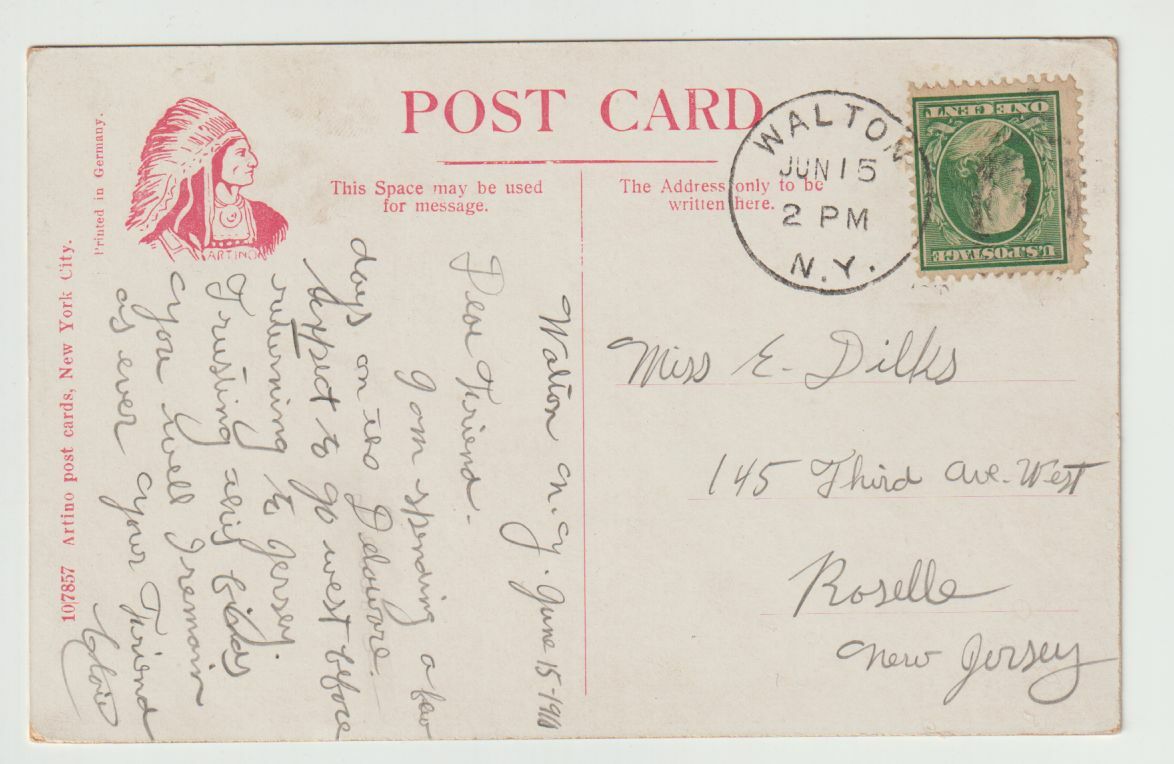 POST CARD
This Space may be used
for message.
The Address only to be
written here.
Printed in Germany.
ARTINO
10|7857 Artino post cards, New York City.
WALTON
JUN 15
2 PM
N.Y.
U.S. POSTAGE
ONE CENT
Walton N. Y. June 15-1911
Dear Friend.
I am spending a few
days on the Delaware.
Expect to go west before
returning to Jersey.
Trusting this finds
you well I remain
as ever your Friend
Miss E. Dilks
145 Third Ave. West
Roselle
New Jersey